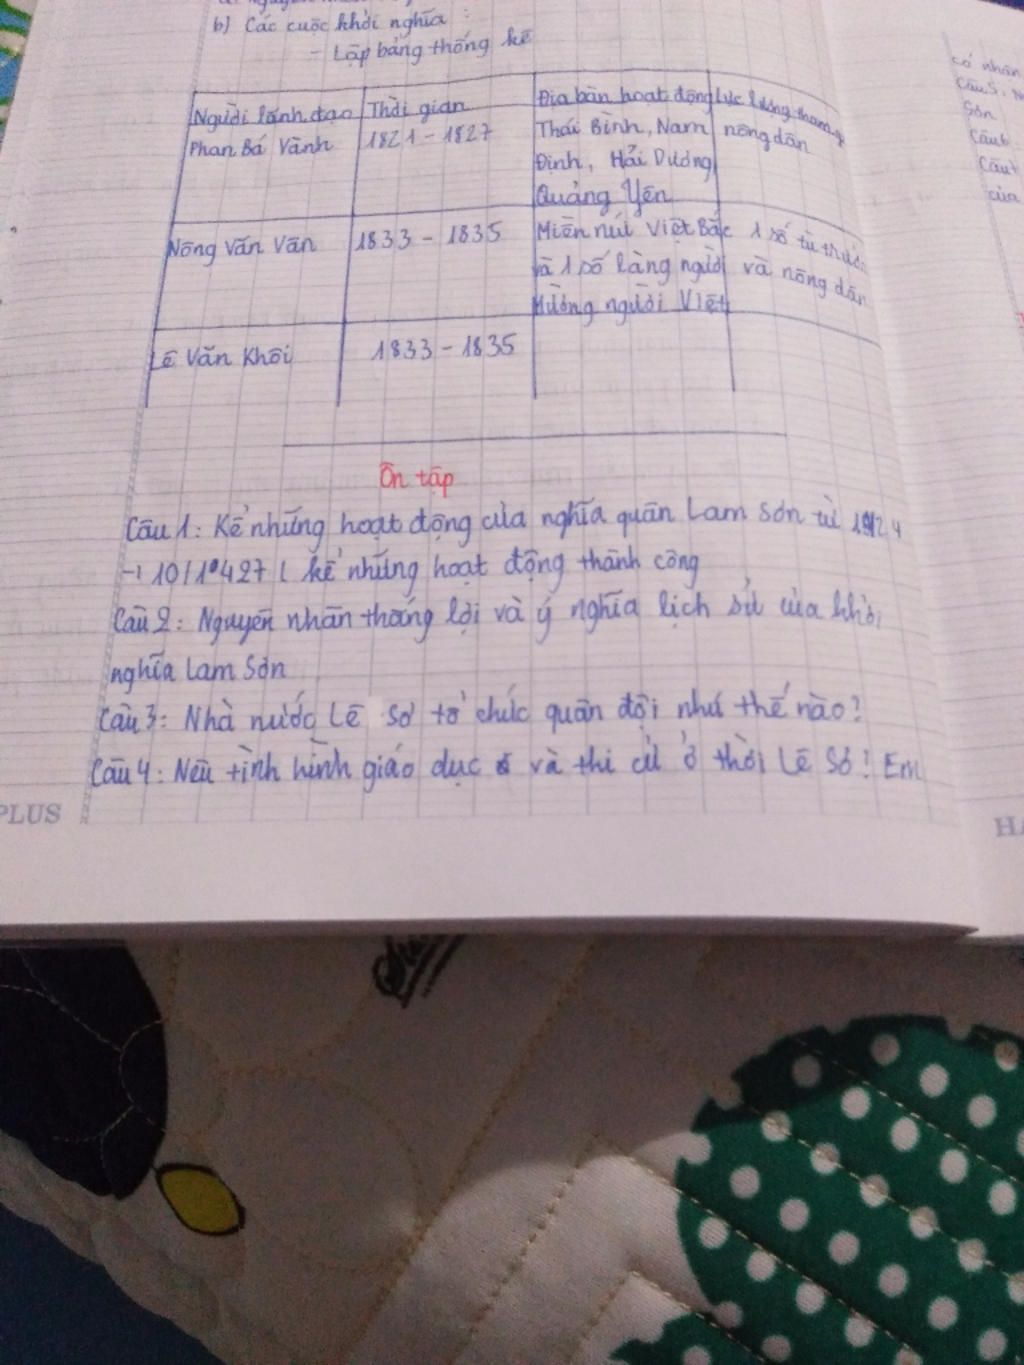 b) Các cuộc khởi nghĩa :
- Lập bảng thống kê
Người lãnh đạo Thời gian Địa bàn hoạt động Lực lượng tham g
Phan Bá Vành 1821 - 1827 Thái Bình, Nam nông dân
Định, Hải Dương,
Quảng Yên
Nông Văn Vân 1833 - 1835 Miền núi Việt Bắc 1 số tù trưởn
và 1 số làng người và nông dân
Mường người Việt
Lê Văn Khôi 1833 - 1835
Ôn tập
Câu 1: Kể những hoạt động của nghĩa quân Lam Sơn từ 1424
→ 10/1427 ( kể những hoạt động thành công
Câu 2: Nguyên nhân thắng lợi và ý nghĩa lịch sử của khởi
nghĩa Lam Sơn
Câu 3: Nhà nước Lê Sơ tổ chức quân đội như thế nào?
Câu 4: Nêu tình hình giáo dục và thi cử ở thời Lê Sơ! Em
PLUS
có nhân
Câu 5: N
Sơn
Câu 6
Câu 7
của
HA